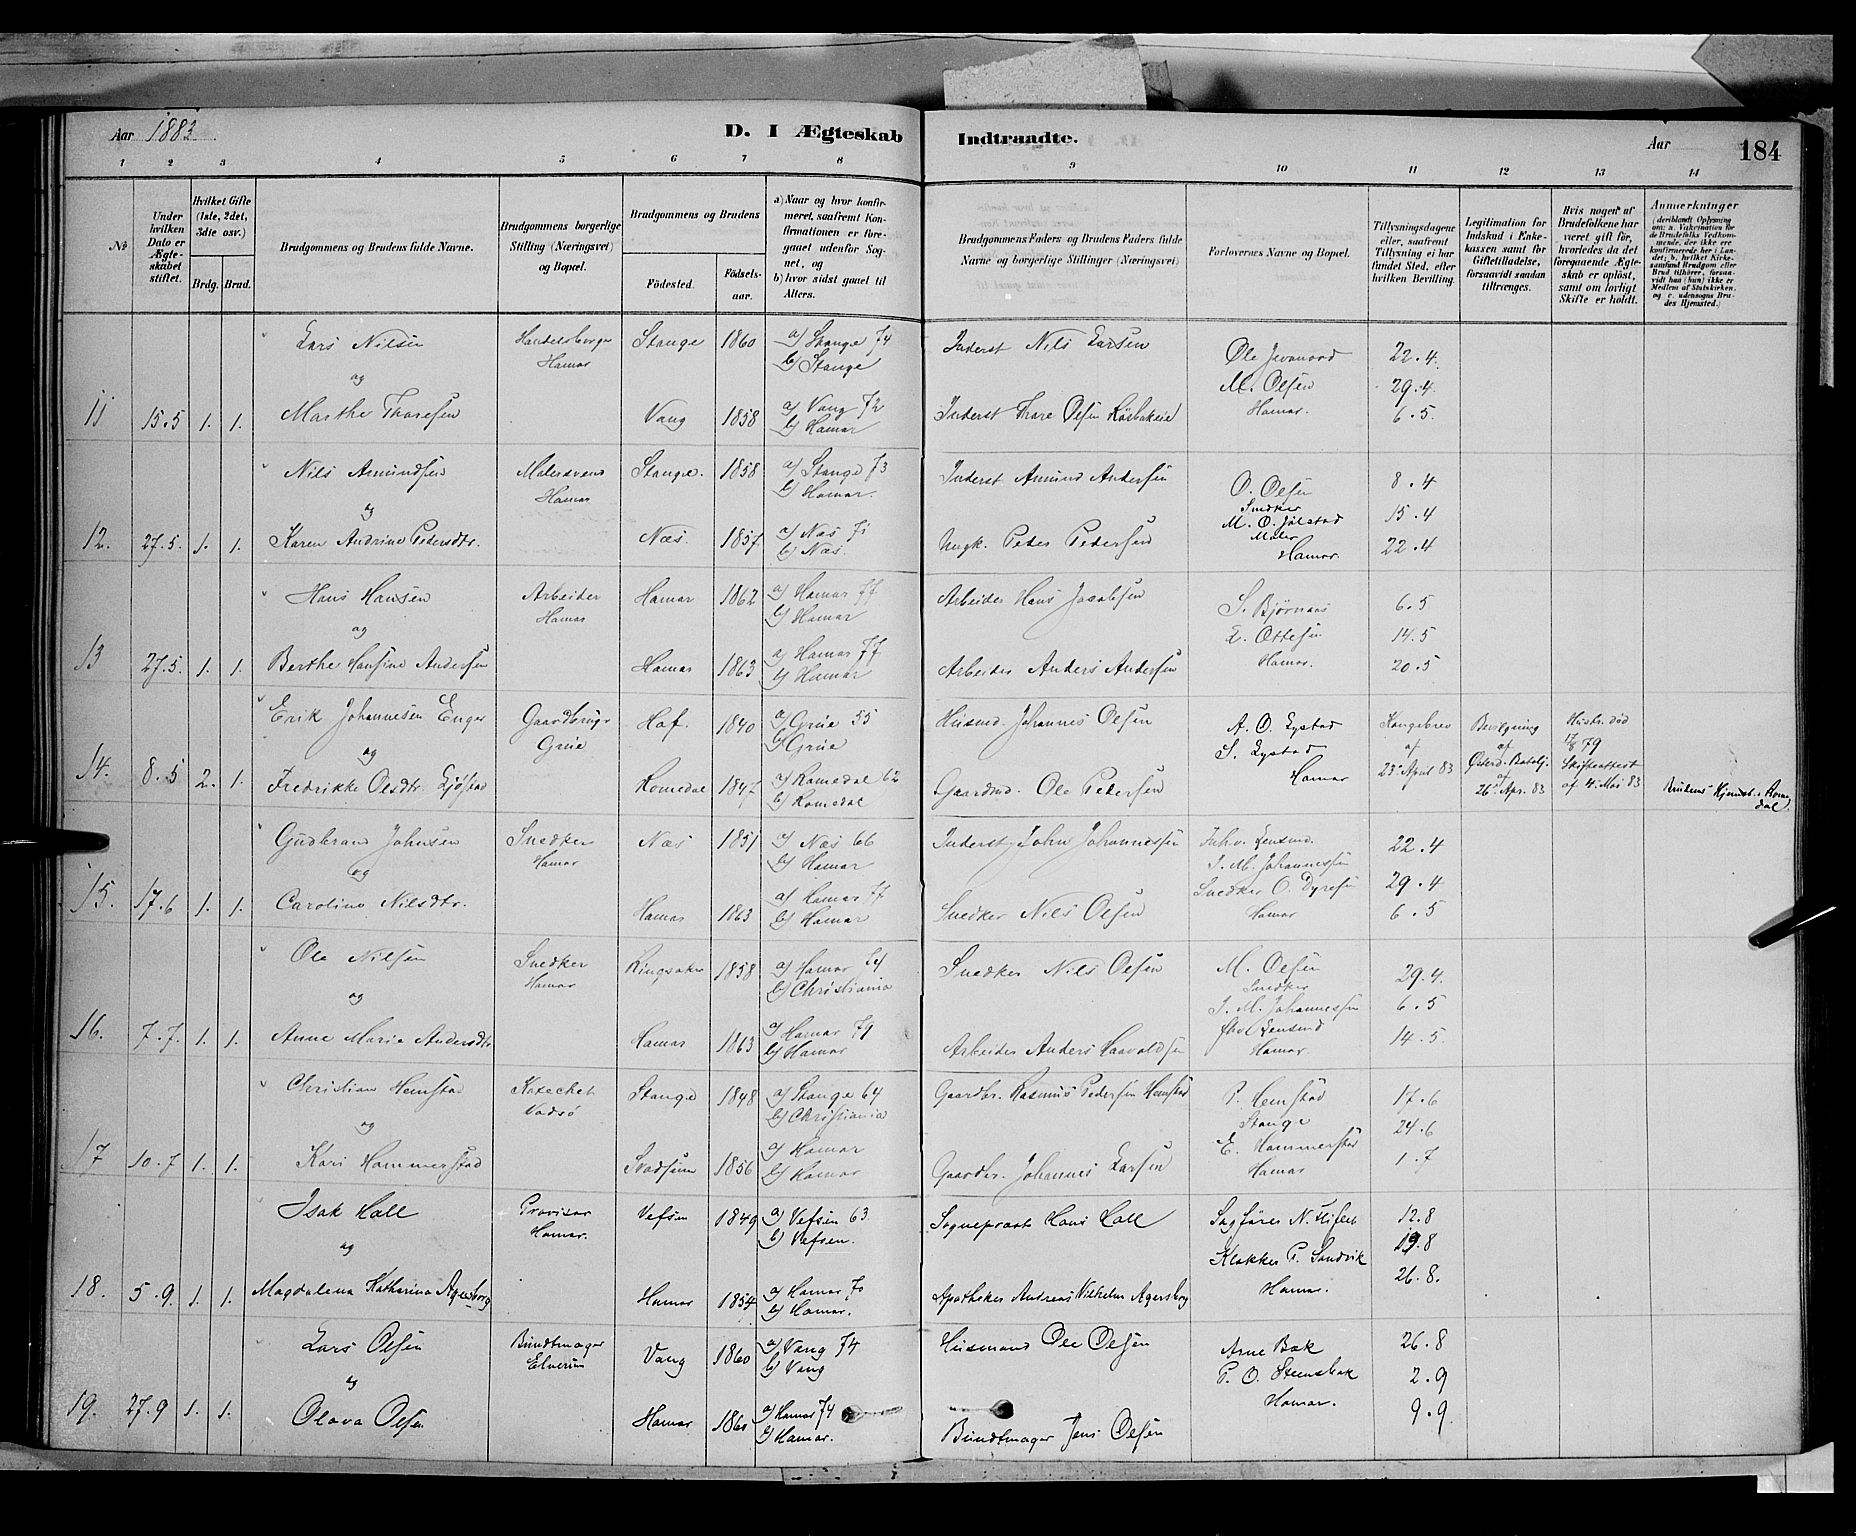 Aar 1883 D. I Ægteskab Indtraadte. Aar 184
1 2 3 4 5 6 7 8 9 10 11 12 13 14
No
Under hvilken Dato er Ægteskabet stiftet.
Hvilket Gifte (1ste, 2det, 3die osv.)
Brdg. Brud.
Brudgommens og Brudens fulde Navne.
Brudgommens borgerlige Stilling (Næringsvei) og Bopæl.
Brudgommens og Brudens
Födested. Födsels-aar.
a) Naar og hvor konfirmeret, saafremt Konfirmationen er foregaaet udenfor Sognet, og
b) hvor sidst gaaet til Alters.
Brudgommens Faders og Brudens Faders fulde Navne og borgerlige Stillinger (Næringsvei)
Forlovernes Navne og Bopæl.
Tillysningsdagene eller, saafremt Tillysning ei har fundet Sted, efter hvilken Bevilling.
Legitimation for Indskud i Enkekassen samt for Giftetilladelse, forsaavidt saadan tiltrænges.
Hvis nogen af Brudefolkene har været gift før, hvorledes da det foregaaende Ægteskab er oplöst, samt om lovligt Skifte er holdt.
Anmerkninger
(deriblandt Oplysning om: a. Vakcination for de Brudefolks Vedkommende, der ikke ere konfirmerede her i Landet; b. hvilket Kirkesamfund Brudgom eller Brud tilhörer, forsaavidt han (hun) ikke er Medlem af Statskirken, og c. udensogns Brudes Hjemsted.)
Lars Nilsen Hamar Stange 1860 a) Stange 74 Inderst Nils Larsen Ole 22.4.
og b) Stange M. Olsen 29.4
11 15.5 1. 1. Marthe Thoresen Vang 1858 a) Vang 72 Inderst Thore Olsen Hamar. 6.5
b) Hamar
Nils Amundsen Malersvend Stange. 1858 a) Stange 73 Inderst Amund Andersen O. Olsen 8.4
og Hamar b) Hamar. Snedker
M. O. Jølstad 15.4
12. 27.5. 1. 1. Karen Andrine Pedersdtr. Næs. 1857. a) Næs 71 Ungk. Peder Pedersen Maler
b) Næs. Hamar. 22.4
Hans Hansen Arbeider Hamar 1862 a) Hamar 77 Arbeider Hans Jacobsen S. Bjørnaas 6.5
og Hamar b) Hamar E. Ottesen 14.5
13 27.5. 1. 1. Berthe Hansine Andersen Hamar 1863 a) Hamar 77 Arbeider Anders Andersen Hamar. 20.5
b) Hamar
Erik Johannesen Enger Gaardbruger Hof. 1840 a) Grue 55 Husmd. Johannes Olsen A. O. Lystad Kongebrev Bevilgning Hustr. død
og Grue b) Grue S. Lystad af af 79
14. 8.5 2. 1. Fredrikke Olsdtr. Romedal 1847 a) Romedal 62 Gaardmd. Ole Pedersen Hamar 23de April 83 Østerd. Batalj. Skifteattest
b) Romedal af 26 Apr. 83 af 4. Mai 83 Brudens Hjemst. Romedal.
Gudbrand Johnsen Snedker Næs 1851 a) Næs 66 Inderst John Johannessen 22.4
og Hamar b) Hamar J. M. Johannessen
15. 17.6 1. 1. Caroline Nilsdtr. Hamar 1863 a) Hamar 77 Snedker Nils Olsen Snedker O. Dyresen 29.4
b) Hamar Hamar 6.5
Ole Nilsen Snedker Ringsaker 1858 a) Hamar Snedker Nils Olsen M. Olsen 29.4.
og Hamar b) Christiania Snedker
J. M. Johannessen 6.5
16. 7.7. 1. 1. Anne Marie Andersdtr Hamar 1863 a) Hamar 79 Arbeider Anders Haavaldsen Hamar. 14.5.
b) Hamar
Christian Hemstad Katechet Stange 1848 a) Stange 64 Gaardbr. Rasmus Pedersen Hemstad P. Hemstad 17.6
og Vadsö b) Christiania Stange 24.6
17 10.7 1. 1. Kari Hammerstad 1856 a) Hamar Gaardbr. Johannes Larsen E. Hammerstad 1.7
b) Hamar Hamar
Isak Hall Provisor Vefsen 1849 a) Vefsen 63. Sogneprest Hans Hall Sagfører N. 12.8
og Hamar. b) Vefsen. Klokker P. Sandvik 19.8
18. 5.9. 1. 1. Magdalena Katharina Agersborg Hamar 1854 a) Hamar 70 Apotheker Andreas Vilhelm Agersborg Hamar. 26.8.
b) Hamar.
Lars Olsen Bundtmager Vang 1860 a) Vang 74 Husmand Ole Olsen Arne Bak 26.8
og Elverum b) Vang P. O. Steensbak 2.9
19. 27.9 1. 1. Olava Olsen Hamar 1860 a) Hamar 74 Bundtmager Jens Olsen Hamar. 9.9.
b) Hamar.